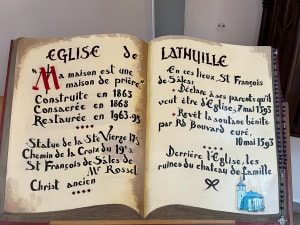 EGLISE de
"Ma maison est une
maison de prière"
Construite en 1863
Consacrée en 1868
Restaurée en 1963-93
Statue de la Ste Vierge 13s
Chemin de la Croix du 19s
St François de Sâles de
Mr Rossel
Christ ancien
LATHUILLE
En ces lieux, St François
de Sâles:
Déclare à ses parents qu'il
veut être d'Eglise, 7 mai 1593
Revêt la soutane bénite
par Rd Bouvard curé.
10 mai 1593
Derrière l'Eglise, les
ruines du chateau de famille